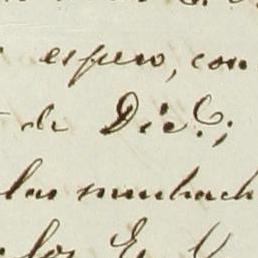 espero, con
de Dic.e;
las muchach
los